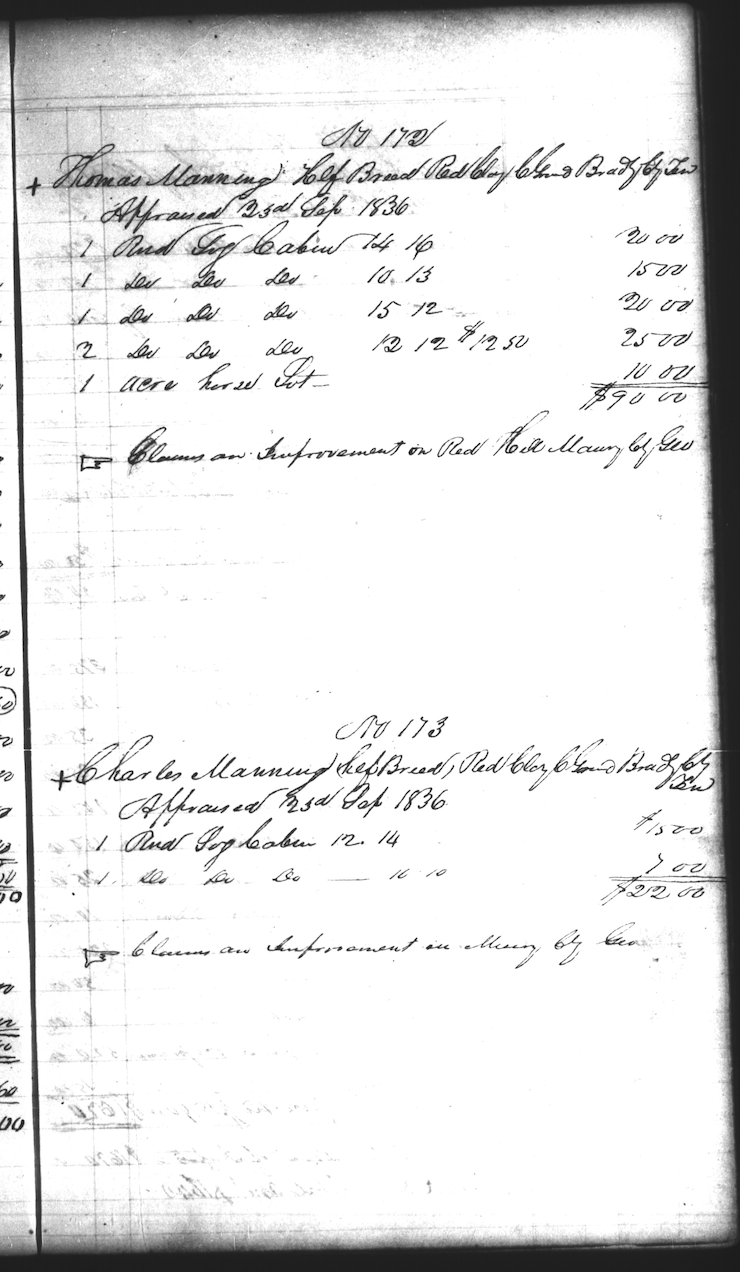 No 172
+ Thomas Manning Hlf Breed Red Clay C Grnd Brady Cty Ten
Appraised 23d Sep 1836
1 Rnd Log Cabin 14 16 20 00
1 Do Do Do 10.13 15 00
1 Do Do Do 15 12 20 00
2 Do Do Do 12 12 $12 50 25 00
1 acre horse Lot 10 00
$90 00
☞ Claims an Improvement on Red Hill Maury Cty Geo
No 173
+ Charles Manning hlf Breed, Red Clay C Grnd Brady Cty
Ten
Appraised 23d Sep 1836
1 Rnd Log Cabin 12. 14 $15 00
1 Do Do Do — 10 10 7 00
$22 00
☞ Claims an Improvement in Murry Cty Geo